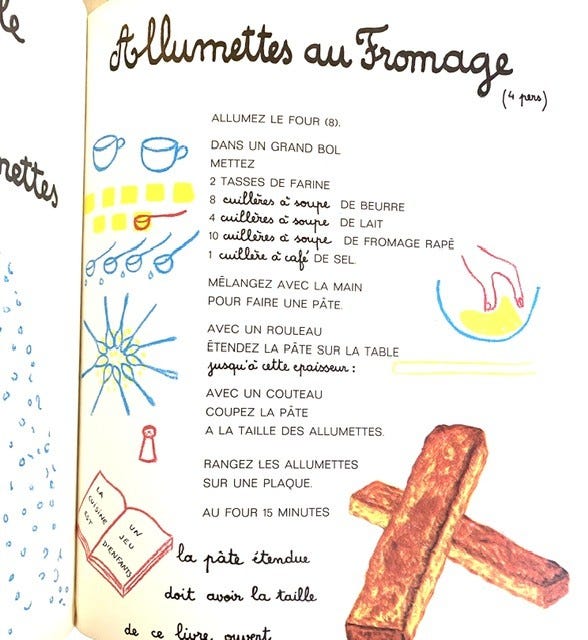 nettes
Allumettes au Fromage
(4 pers)
ALLUMEZ LE FOUR (8).
DANS UN GRAND BOL
METTEZ
2 TASSES DE FARINE
8 cuillères à soupe DE BEURRE
4 cuillères à soupe DE LAIT
10 cuillères à soupe DE FROMAGE RAPÊ
1 cuillère à café DE SEL.
MÊLANGEZ AVEC LA MAIN
POUR FAIRE UNE PÂTE.
AVEC UN ROULEAU
ÊTENDEZ LA PÂTE SUR LA TABLE
jusqu'à cette epaisseur :
AVEC UN COUTEAU
COUPEZ LA PÂTE
A LA TAILLE DES ALLUMETTES.
RANGEZ LES ALLUMETTES
SUR UNE PLAQUE.
AU FOUR 15 MINUTES
LA
CUISINE
EST
UN
JEU
D'ENFANTS
la pâte étendue
doit avoir la taille
de ce livre ouvert